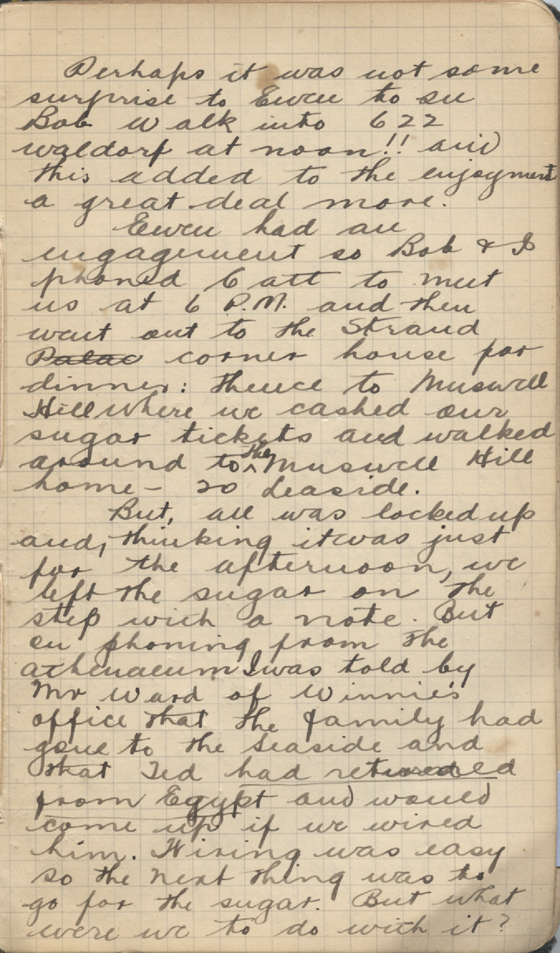 Perhaps it was not some
surprise to Ewen to see
Bob walk into 622
waldorf at noon!! and
this added to the enjoyment
a great deal more.
Ewen had an
engagement so Bob & I
phoned Catt to meet
us at 6 P.M. and then
went out to the Strand
Palac corner house for
dinner: thence to Muswell
Hill where we cashed our
sugar tickets and walked
around to the Muswell Hill
home - 20 Leaside.
But, all was locked up
and, thinking it was just
for the afternoon, we
left the sugar on the
step with a note. But
on phoning from the
athenaeum I was told by
Mr Ward of Winnie's
office that the family had
gone to the seaside and
that Ted had returned
from Egypt and would
come up if we wired
him. Wiring was easy
so the next thing was to
go for the sugar. But what
were we to do with it?